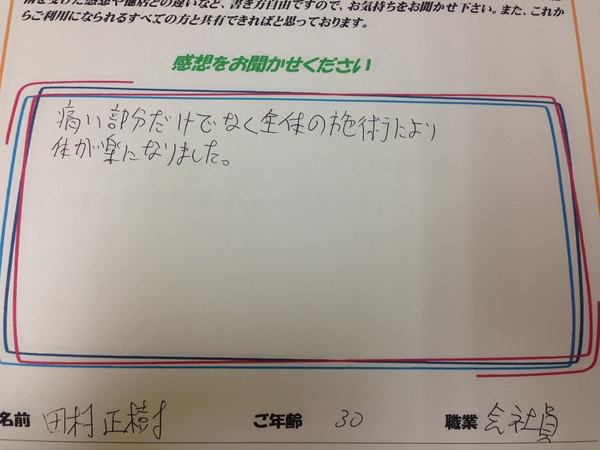 術を受けた感想や他店との違いなど、書き方自由ですので、お気持ちをお聞かせ下さい。また、これか
らご利用になられるすべての方と共有できればと思っております。
感想をお聞かせください
痛い部分だけでなく全体の施術により
体が楽になりました。
名前 田村 正樹 ご年齢 30 職業 会社員